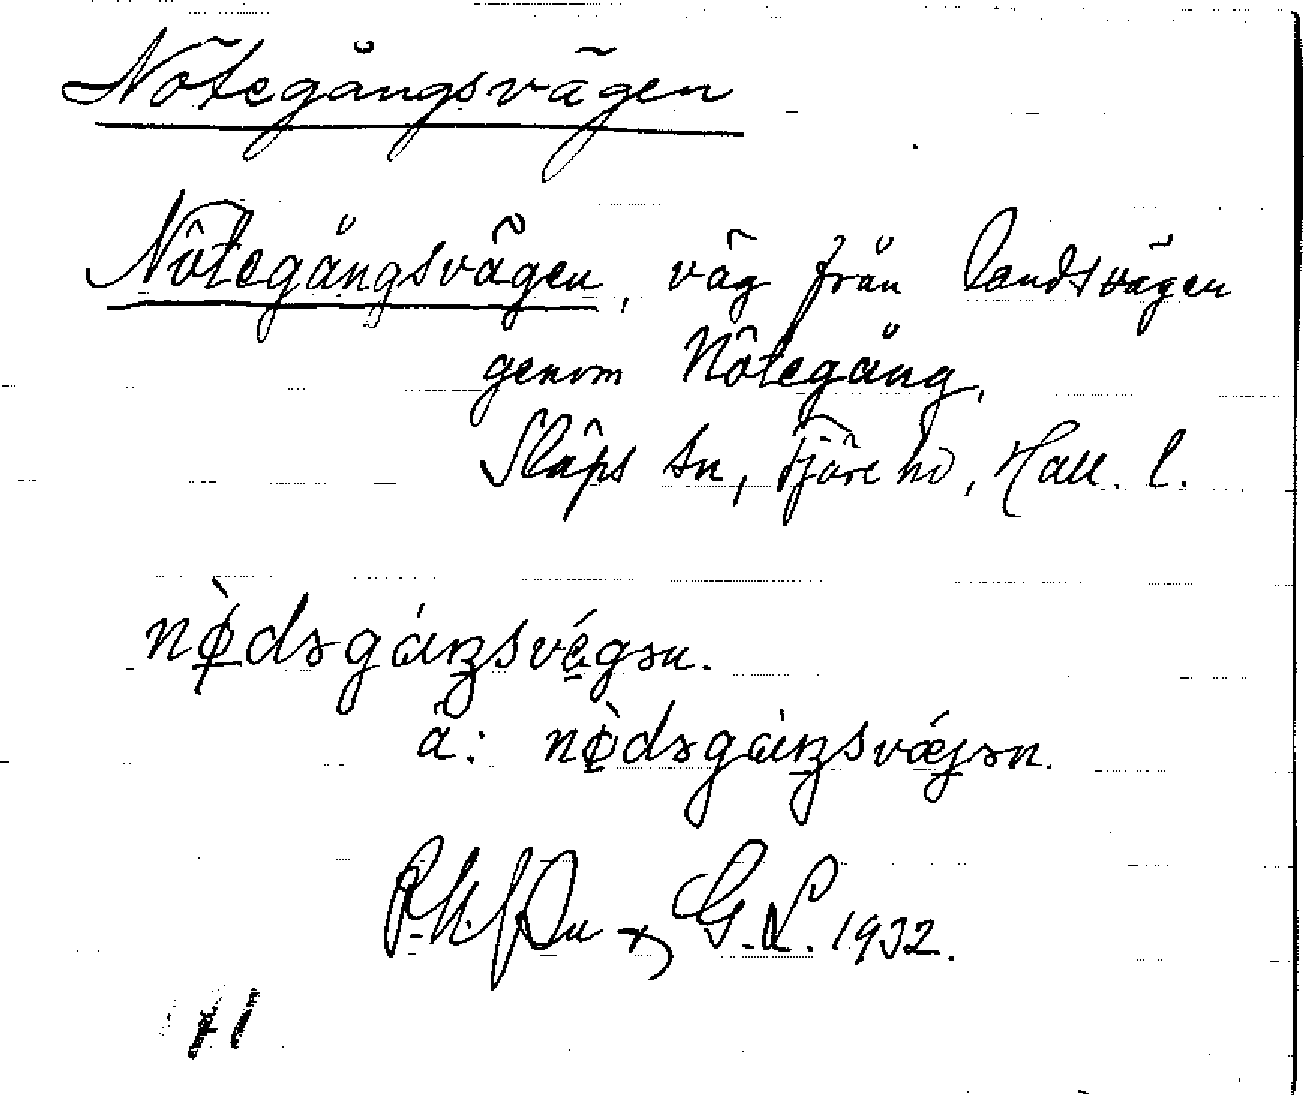 Nötegångsvägen
Nötegångsvägen, väg från landsvägen
genom Nötegång,
Släps sn, Fjäre hd, Hall. l.
nø̀dəgáŋsvég̣ən.
ä: nø̀dəgáŋsvǽjən.
G. L. 1932.